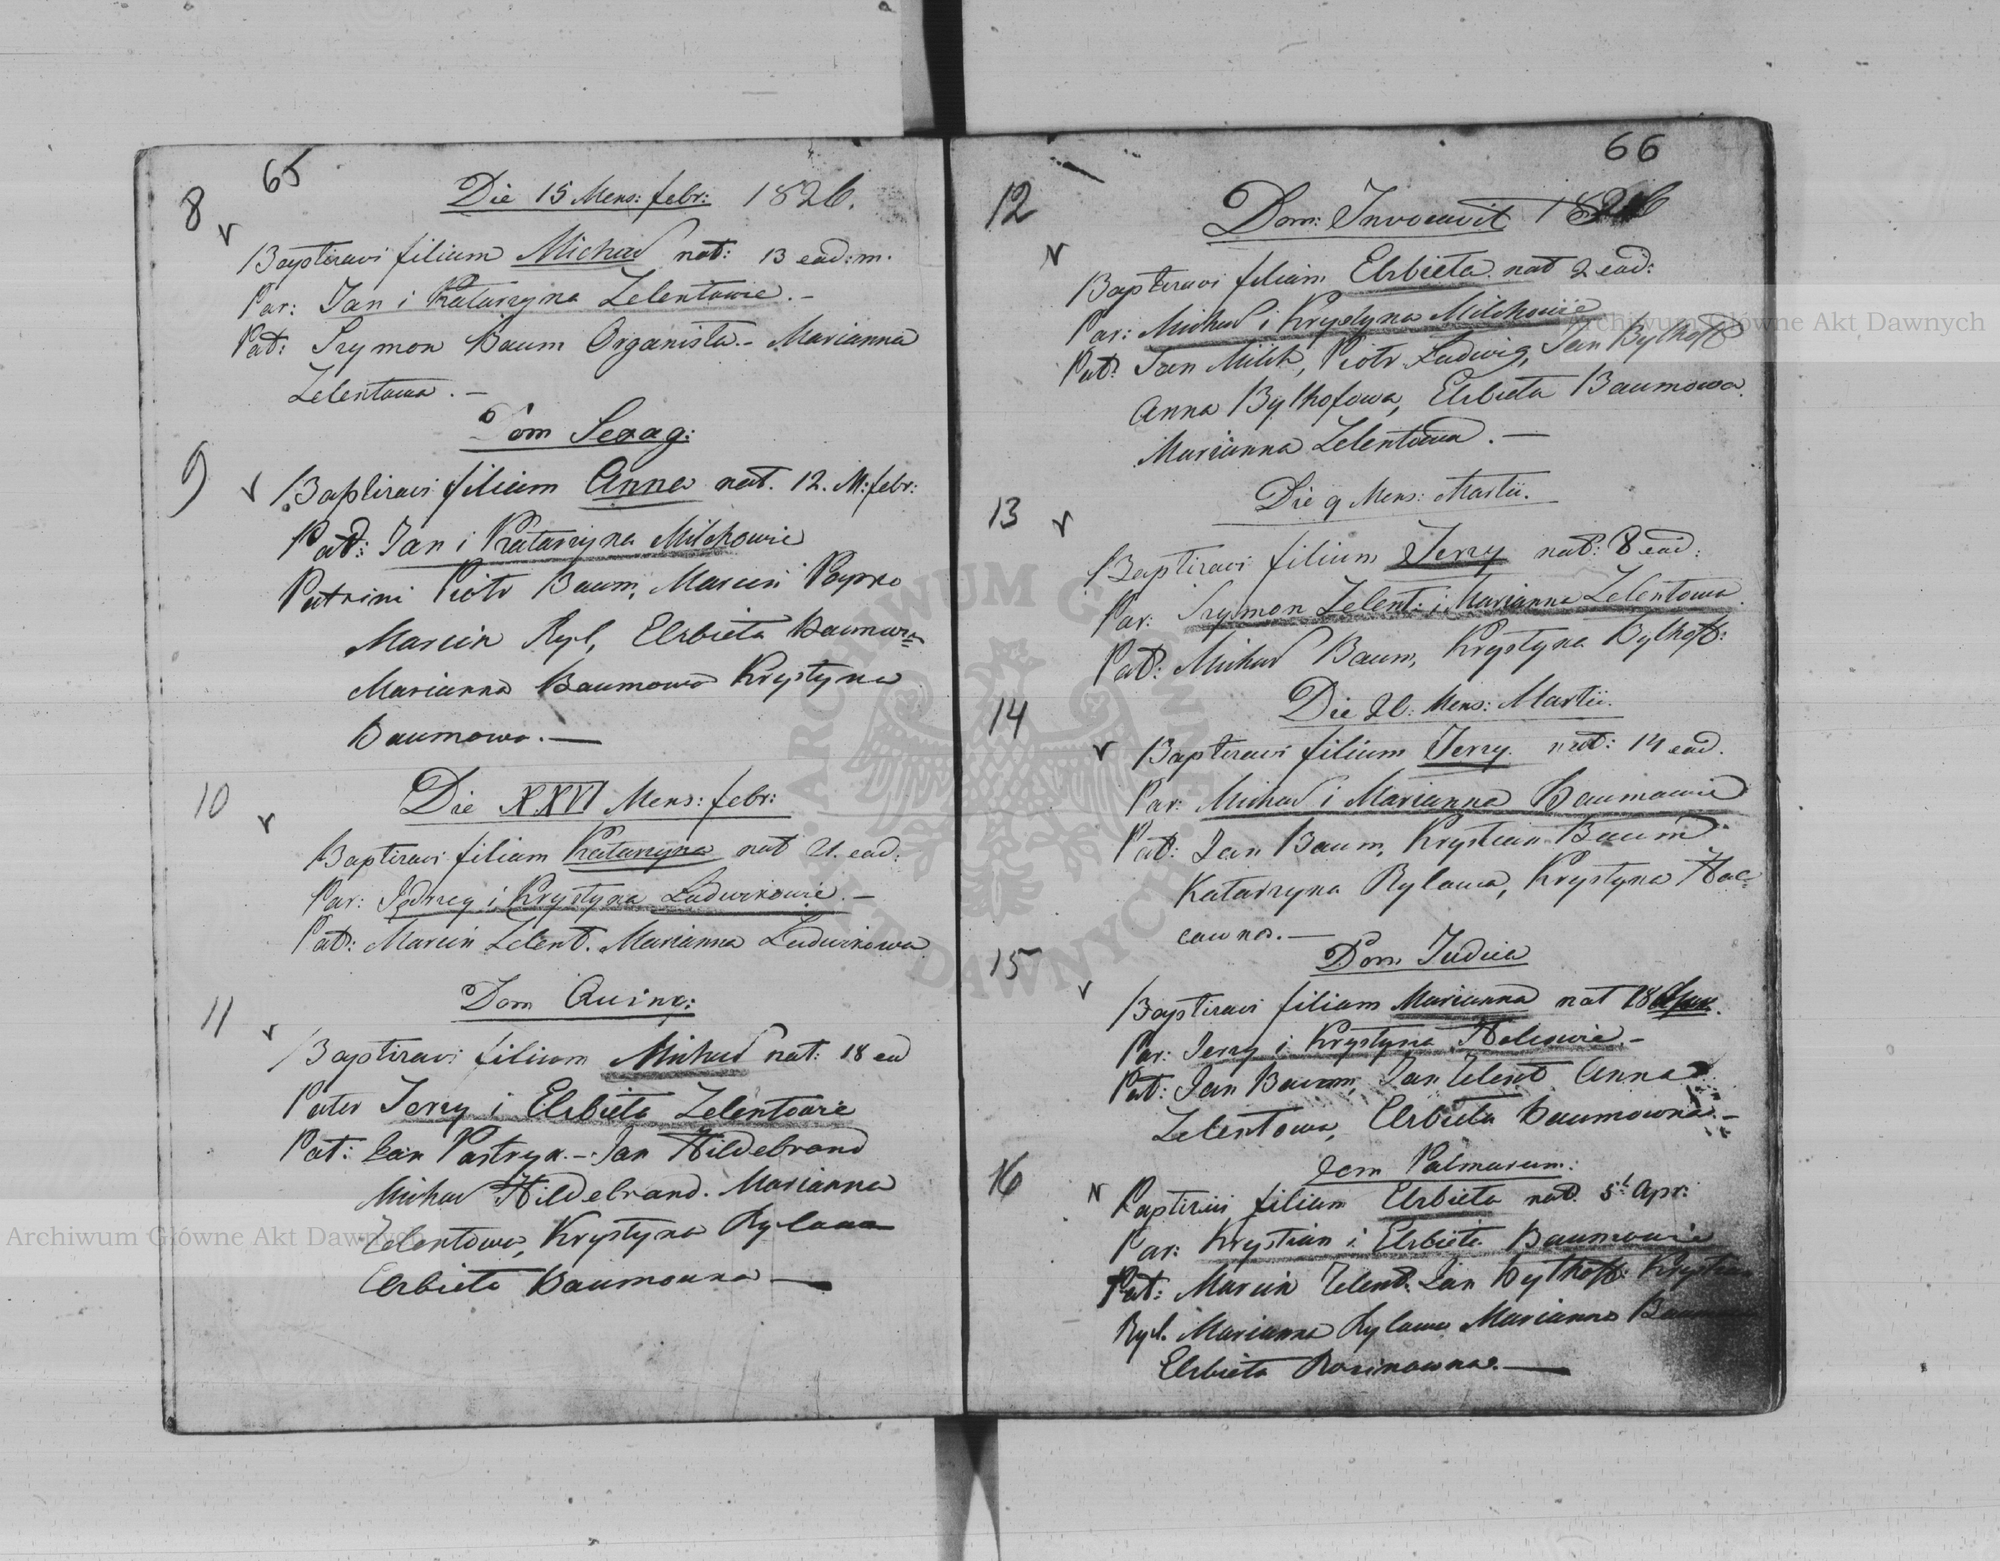 65
8
Die 15 Mens: febr: 1826.
Baptizavi filium Michał nat: 13 ead: m.
Par: Jan i Katarzyna Zelentowie. -
Pat: Szymon Baum Organista. - Marianna
Zelentowa. -
Dom Sexag:
9
Baptizavi filiam Anna nat. 12. M: febr:
Pat: Jan i Katarzyna Milchowie
Patrini Piotr Baum, Marcin
Marcin Ryl, Elzbieta
Marianna Baumowa Krystyna
Baumowa. —
10
Die XXVI Mens: febr:
Baptizavi filiam Katarzyna nat 21. ead:
Par: Jędrzey i Krystyna Ludwikowie. -
Pat: Marcin Zelent. Marianna Ludwikowa
Dom Quinq:
11
Baptizavi filium Michał nat: 18 ead
Pater Jerzy i Elzbieta Zelentowie
Pat: Jan Pastryk. - Jan Hildebrand
Michał Hildebrand. Marianna
Zelentowa, Krystyna Rylowa
Elzbieta Baumowna —
66
12
Dom: Invocavit 1826
Baptizavi filiam Elzbieta nat 2 ead:
Par: Michał i Krystyna Milchowie
Pat: Jan Milch, Piotr Ludwig, Jan Bylhoff
Anna Bylhofowa, Elzbieta Baumowa
Marianna Zelentowa. —
13
Die 9 Mens: Martii.
Baptizavi filium Jerzy nat: 8 ead:
Par: Szymon Zelent: i Marianna Zelentowa.
Pat: Michał Baum, Krystyna Bylhoff:
14
Die 20: Mens: Martii.
Baptizavi filium Jerzy. nat: 14 ead.
Par: Michał i Marianna Baumowie
Pat: Jan Baum, Krystian Baum
Katarzyna Rylowa, Krystyna Hol-
cowna. —
15
Dom Judica
Baptizavi filiam Marianna nat 18
Par: Jerzy i Krystyna Holcowie. -
Pat: Jan Baum, Jan Zelent Anna
Zelentowa, Elzbieta Baumowna -
16
Dom Palmarum:
Baptizavi filiam Elzbieta nat. 5t Apr:
Par: Krystian i Elzbieta Baumowie
Pat: Marcin Zelent. Jan Bylhoff: Krystian
Ryl. Marianna Rylowa Marianna
Elzbieta —
Archiwum Główne Akt Dawnych
Archiwum Główne Akt Dawnych
ARCHIWUM GŁÓWNE AKT DAWNYCH